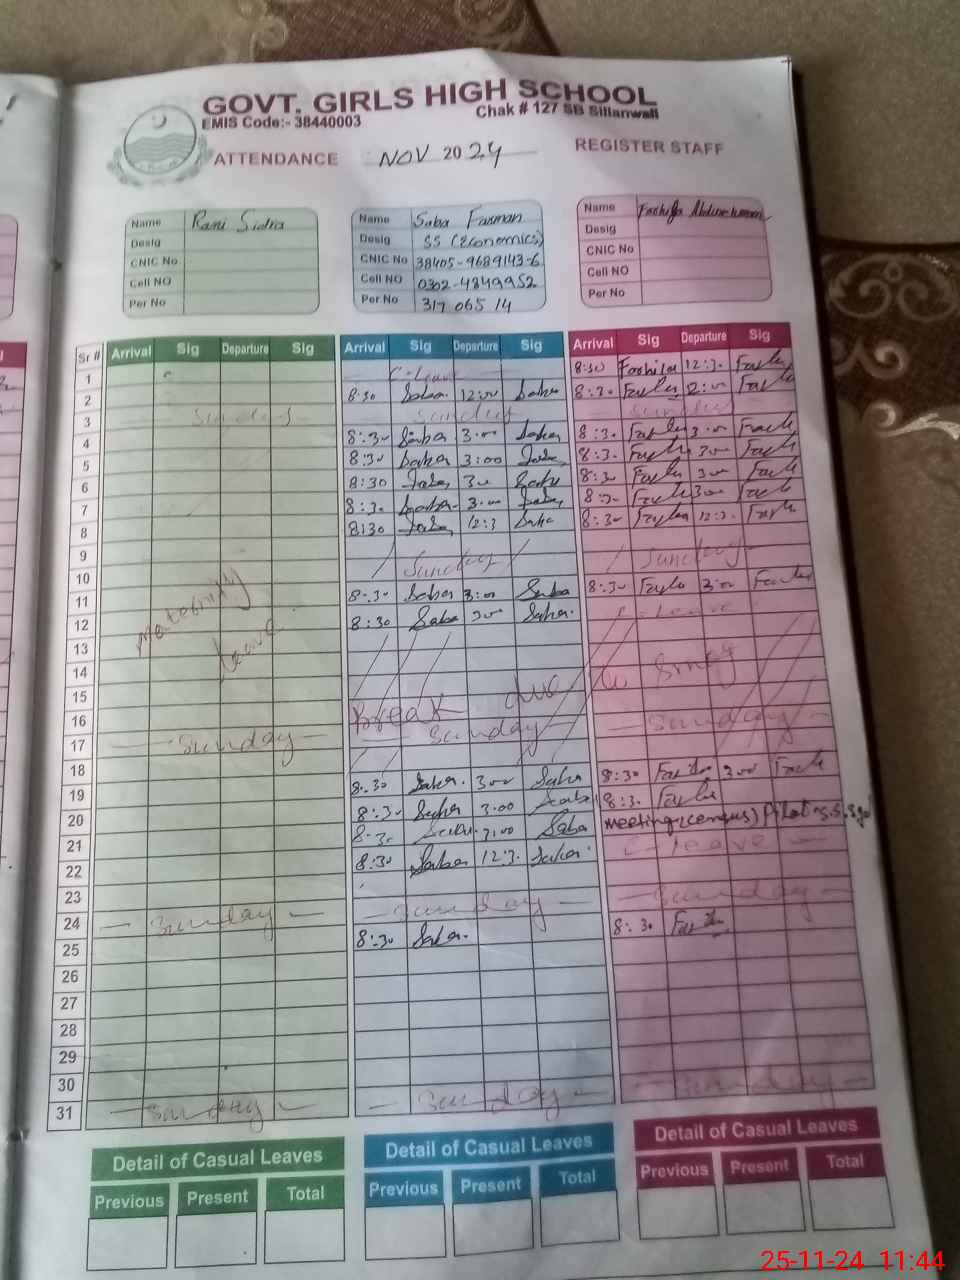 GOVT. GIRLS HIGH SCHOOL
EMIS Code:- 38440003 Chak # 127 SB Sillanwali
ATTENDANCE NOV 2024 REGISTER STAFF
Name Rani Sidra Name Saba Farman Name
Desig Desig SS (Economics) Desig
CNIC No CNIC No 38405-9689143-6 CNIC No
Cell NO Cell NO 0302-4849952 Cell NO
Per No Per No 317 065 14 Per No
Sr # Arrival Sig Departure Sig Arrival Sig Departure Sig Arrival Sig Departure Sig
1 C-Leave 8:30 12:3.
2 8:30 Saba 12:00 Saba 8:3.
3 Sunday Sunday Sunday
4 8:30 Saba 3:00 Saba 8:3. 3:00
5 8:30 Saba 3:00 Saba 8:3. 300
6 8:30 Saba 300 Saba 8:30 300
7 8:3. Saba 3:00 Saba 8:3. 300
8 8:30 Saba 12:3 Saba 8:30 12:3.
9
10 Sunday Sunday
11 8:30 Saba 3:00 Saba 8:30 3:00
12 8:30 Saba 300 Saba Leave
13 Maternity
14 Leave
15
16 Break due to Smog
17 Sunday Sunday Sunday
18
19 8:30 Saba 300 Saba 8:30 300
20 8:30 Saba 3.00 Saba 8:3.
21 8:30 Saba 3:00 Saba meeting (census)
22 8:30 Saba 12:3. Saba C-leave
23
24 Sunday Sunday Sunday
25 8:30 Saba 8:30
26
27
28
29
30
31 Sunday Sunday Sunday
Detail of Casual Leaves Detail of Casual Leaves Detail of Casual Leaves
Previous Present Total Previous Present Total Previous Present Total
25-11-24 11:44